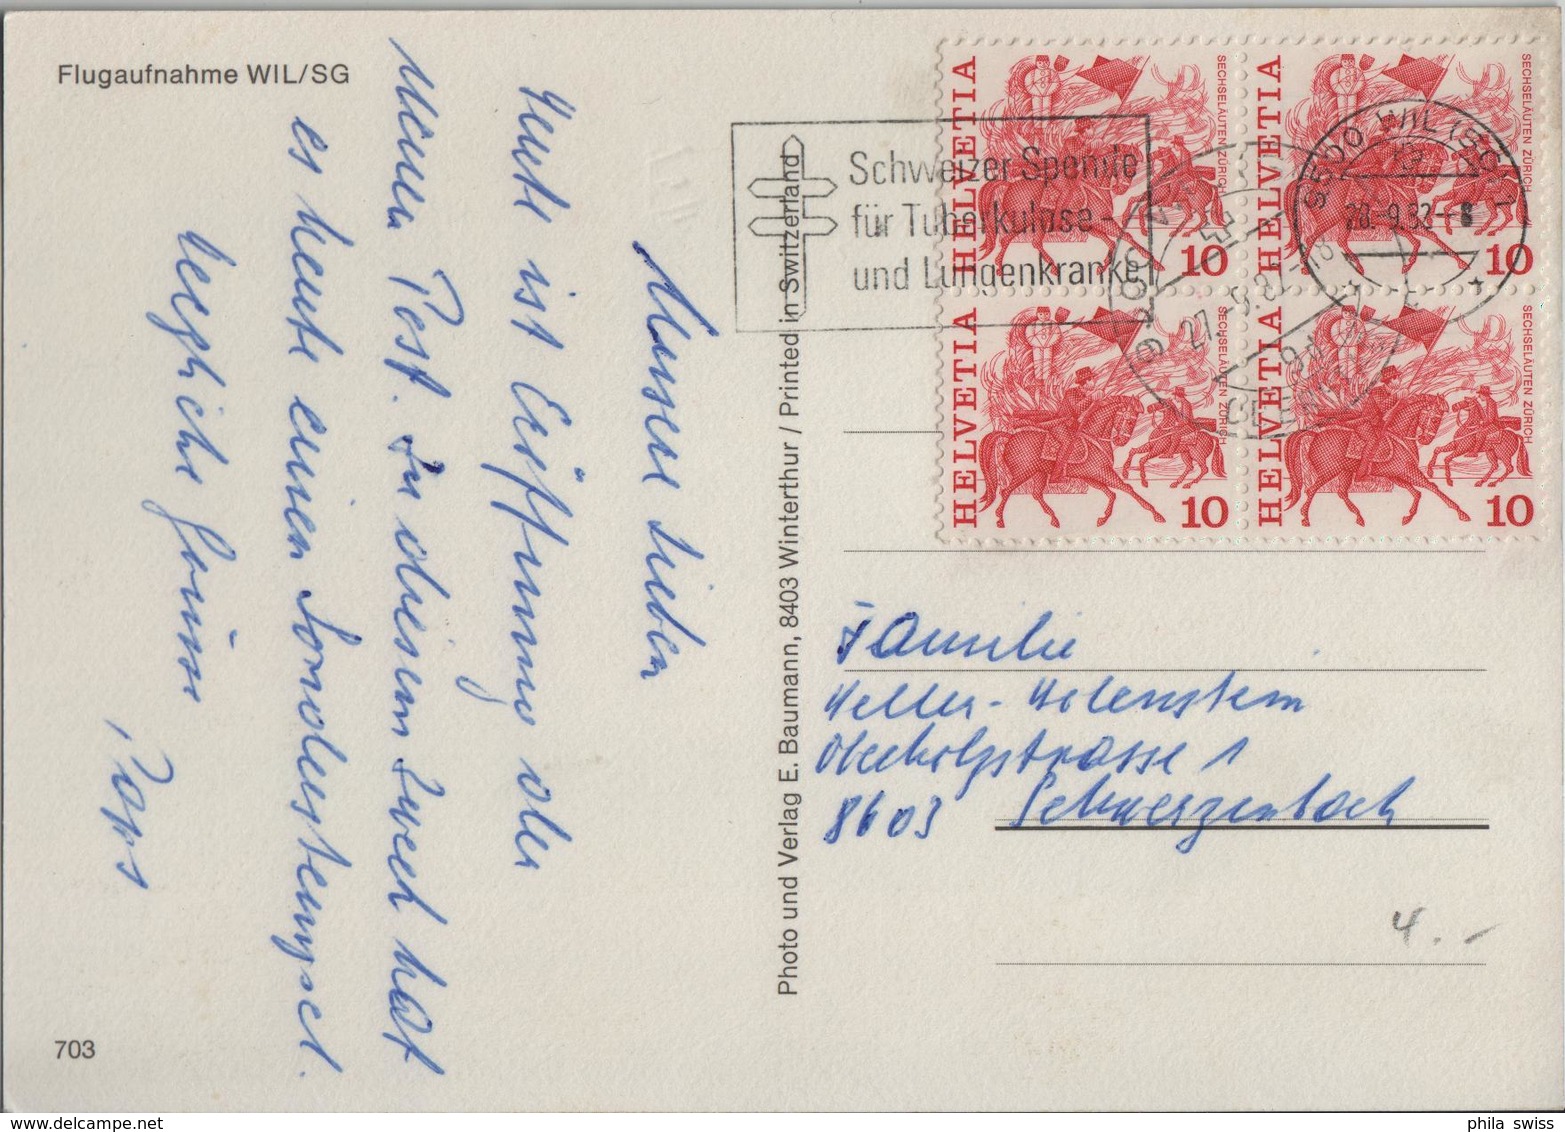 Flugaufnahme WIL/SG
Unsere Lieben
Heute ist Eröffnung der
Neuen Post. Zu diesem Zweck hat
es heute einen Sonderstempel.
herzliche Grüsse
Paps
703
Photo und Verlag E. Baumann, 8403 Winterthur / Printed in Switzerland
Schweizer Spende
für Tuberkulose-
und Lungenkranke
HELVETIA
SECHSELÄUTEN ZÜRICH
10
HELVETIA
SECHSELÄUTEN ZÜRICH
10
HELVETIA
SECHSELÄUTEN ZÜRICH
10
HELVETIA
SECHSELÄUTEN ZÜRICH
10
9500 WIL (SG) 1
28.-9.82--8
27.-9.82-18
Familie
Keller-Holenstein
Oberholzstrasse 1
8603 Schwerzenbach
4.-
www.delcampe.net
phila swiss